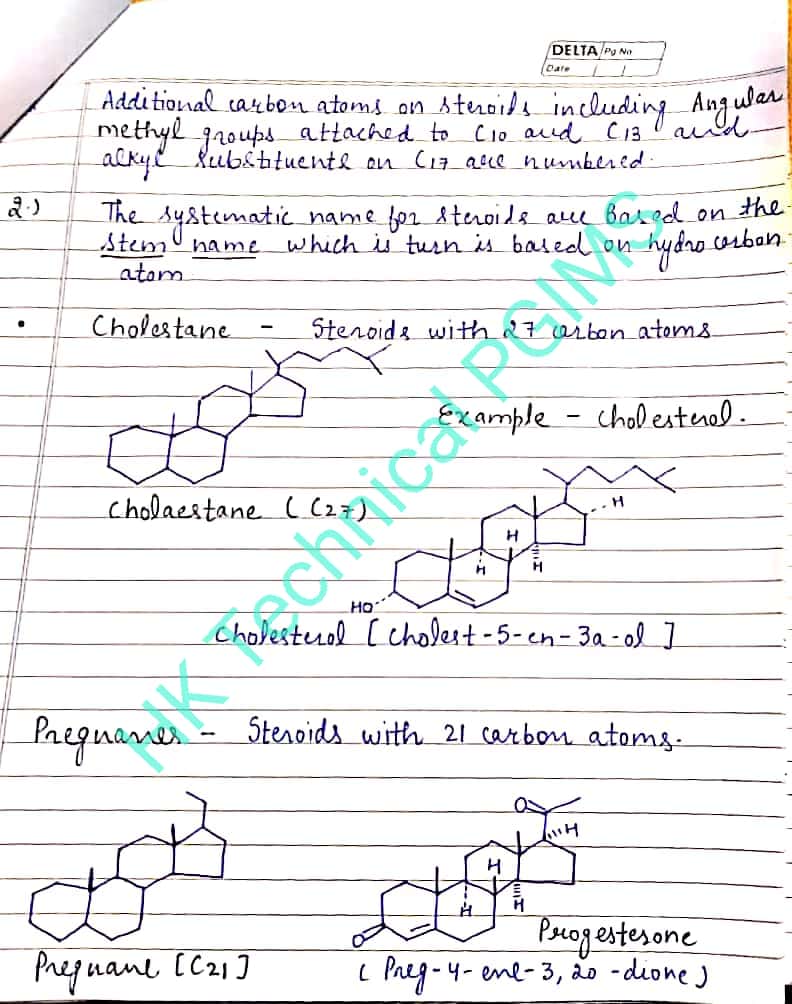 DELTA Pg No
Date / /
Additional carbon atoms on steroids including Angular
methyl groups attached to C10 and C13 and
alkyl substituents on C17 are numbered.
2.) The systematic name for steroids are Based on the
stem name which is turn is based on hydro carbon
atom
• Cholestane - Steroids with 27 carbon atoms
Example - Cholesterol.
Cholaestane (C27)
H
H
H
H
HO
Cholesterol [Cholest-5-en-3a-ol]
Pregnanes - Steroids with 21 carbon atoms.
O
H
H
H
H
O
Progesterone
Pregnane [C21]
(Preg-4-ene-3, 20 -dione)
HK Technical PGIMS